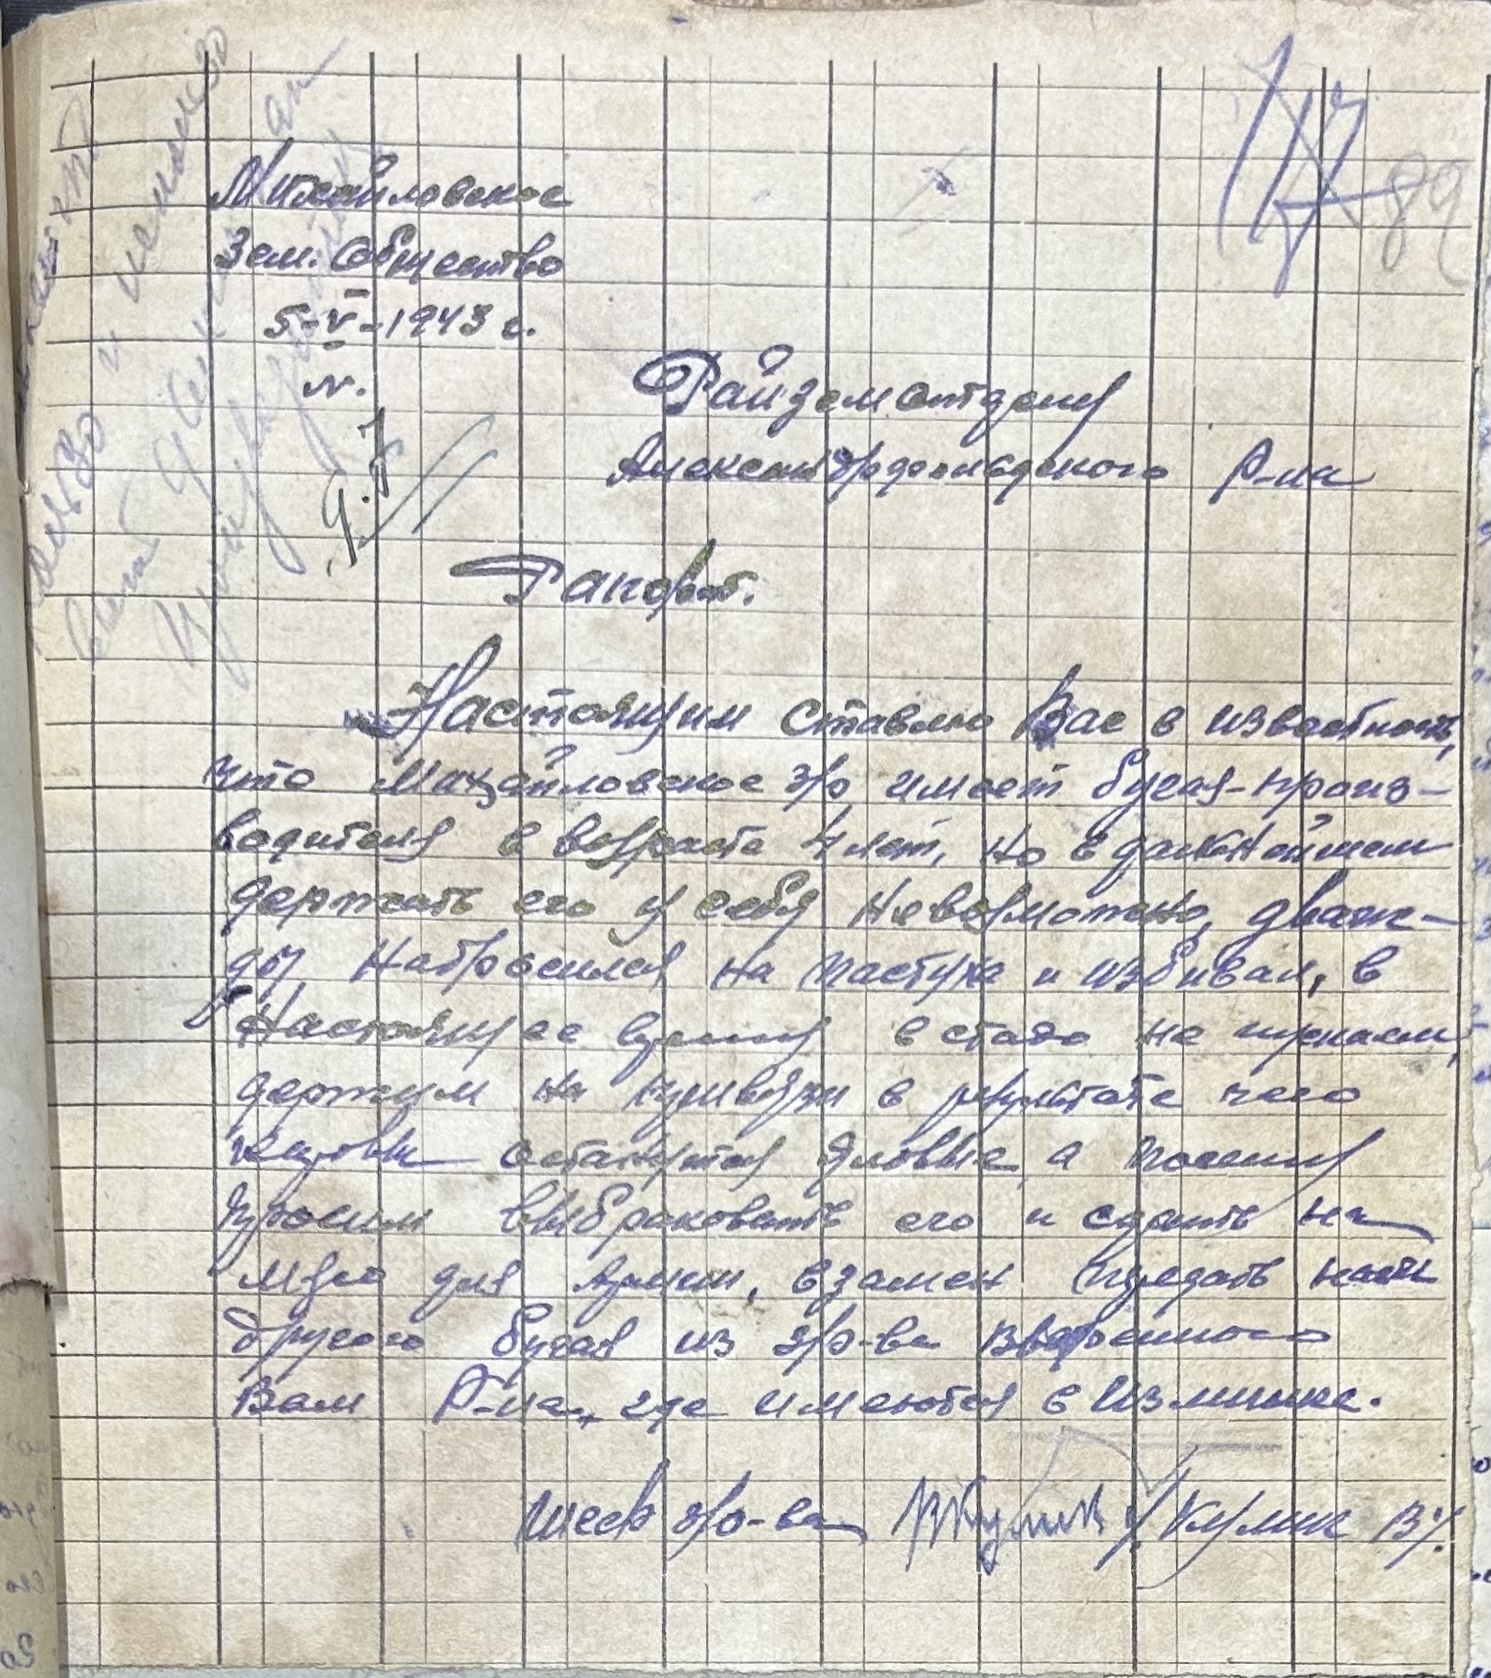 89
Михайловское
Зем. Общество
5-V-1943 г.
N.
Райземотделу
Р-на
Рапорт.
Настоящим ставлю Вас в известность,
что Михайловское з/о имеет бугая-произ-
водителя в возрасте 4 лет, но в дальнейшем
держать его у себя невозможно, дваж-
ды набросился на пастуха и избивал, в
настоящее время в стадо не пускаем,
держим на привязи в результате чего
коровы останутся яловые, а посему
просим выбраковать его и сдать на
мясо для Армии, взамен передать нам
другого бугая из з/о-ва вверенного
Вам Р-на, где имеются в излишке.
Шеф з/о-ва /Кулик В/.